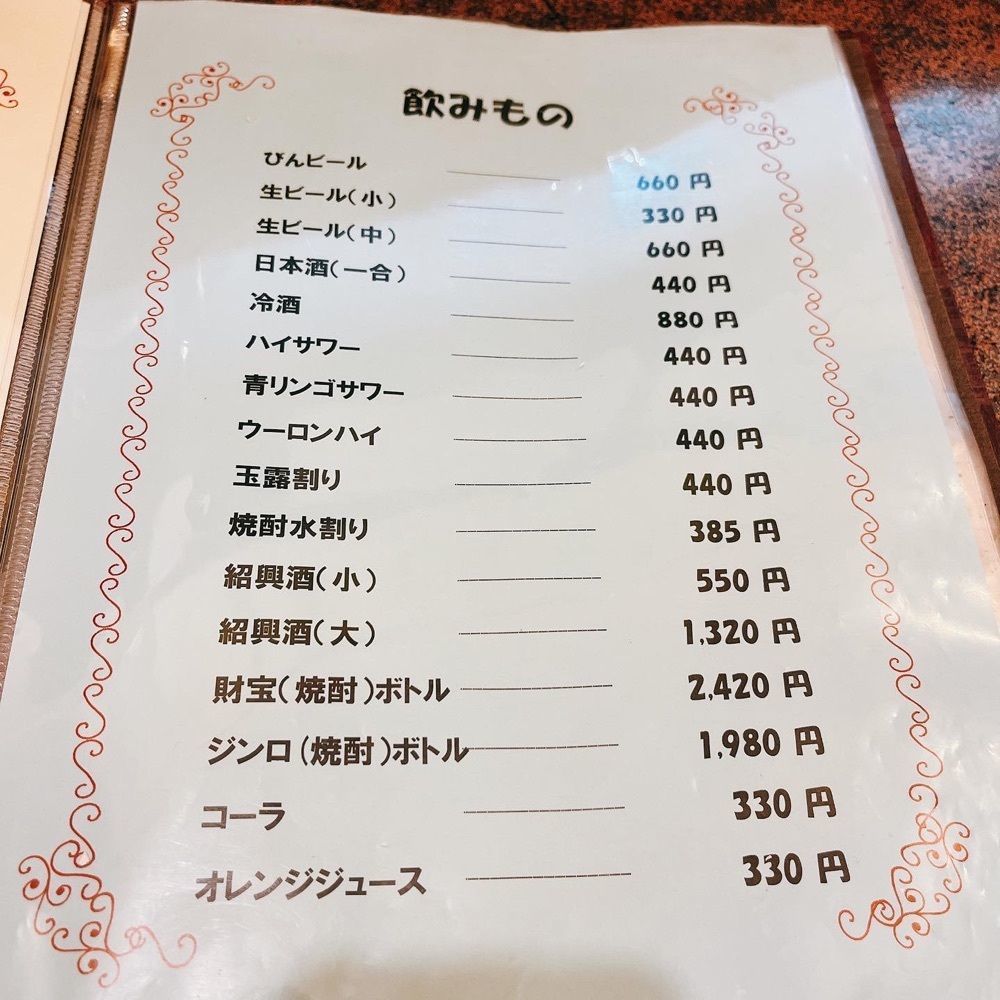 飲みもの
びんビール 660 円
生ビール(小) 330 円
生ビール(中) 660 円
日本酒(一合) 440 円
冷酒 880 円
ハイサワー 440 円
青リンゴサワー 440 円
ウーロンハイ 440 円
玉露割り 440 円
焼酎水割り 385 円
紹興酒(小) 550 円
紹興酒(大) 1,320 円
財宝(焼酎)ボトル 2,420 円
ジンロ(焼酎)ボトル 1,980 円
コーラ 330 円
オレンジジュース 330 円